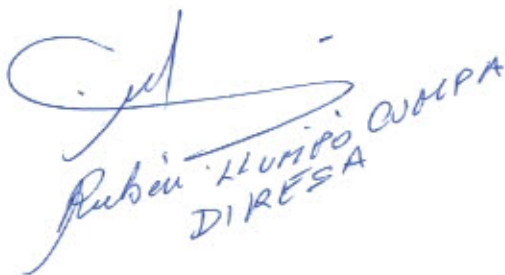 Rubén LLUMPO CUMPA
DIRESA